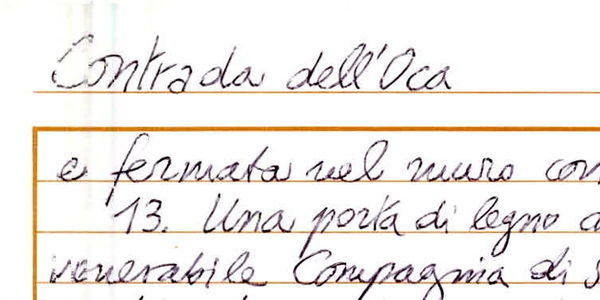 Contrada dell'Oca
e fermata nel muro con
13. Una porta di legno
venerabile Compagnia di S